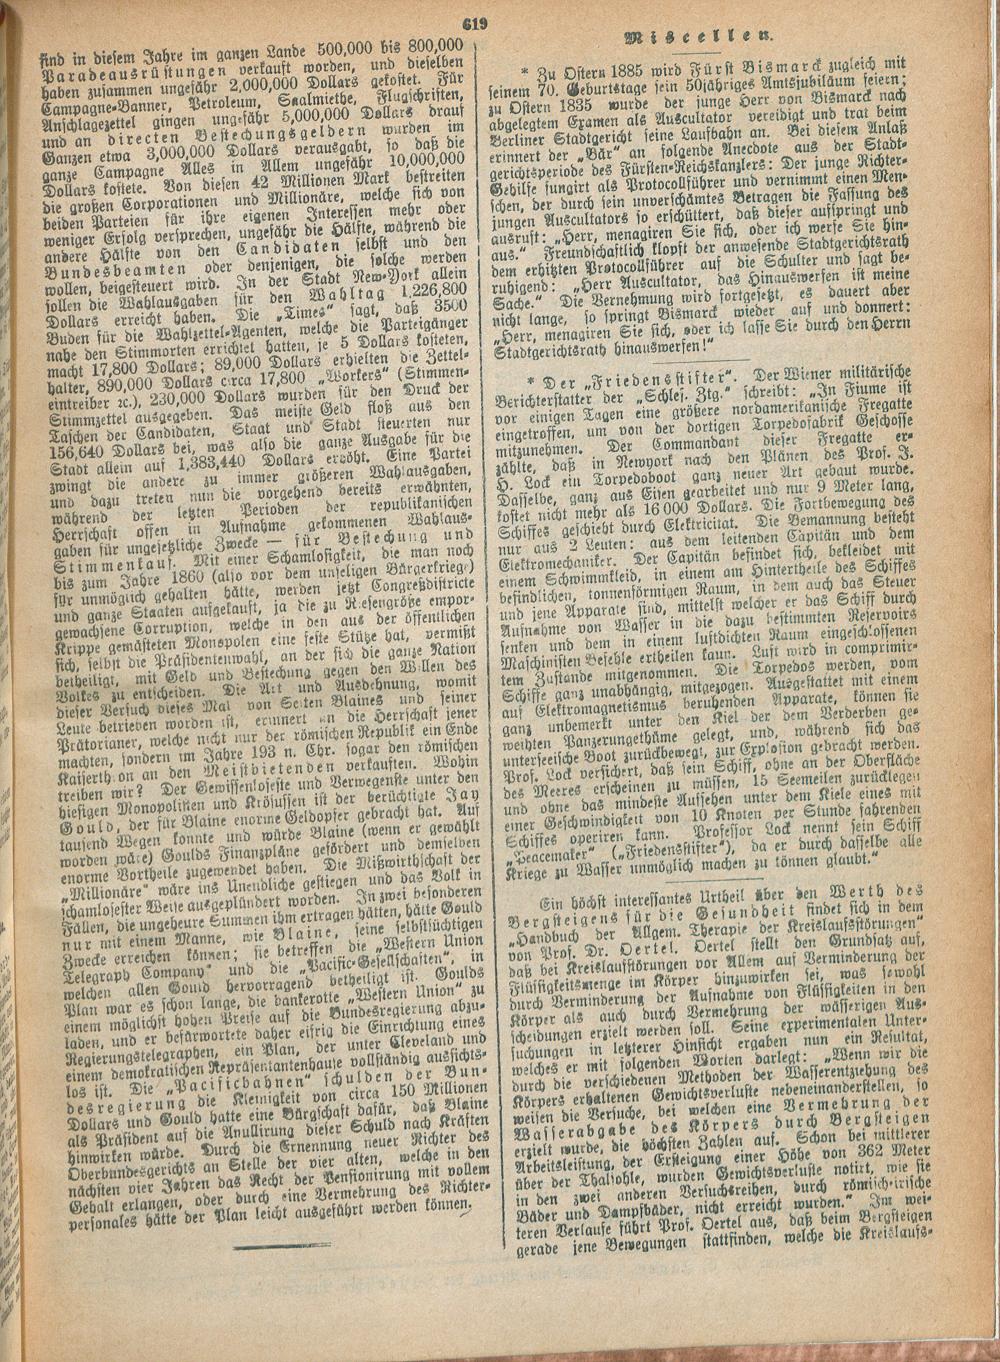 619
find in diesem Jahre im ganzen Lande 500,000 bis 800,000
Paradeausrüstungen verkauft worden, und dieselben
haben zusammen ungefähr 2,000,000 Dollars gekostet. Für
Campagne-Banner, Petroleum, Saalmiethe, Flugschriften,
Anschlagezettel gingen ungefähr 5,000,000 Dollars drauf
und an directen Bestechungsgeldern wurden im
Ganzen etwa 3,000,000 Dollars verausgabt, so daß die
ganze Campagne Alles in Allem ungefähr 10,000,000
Dollars kostete. Von diesen 42 Millionen Mark bestreiten
die großen Corporationen und Millionäre, welche sich von
beiden Parteien für ihre eigenen Interessen mehr oder
weniger Erfolg versprechen, ungefähr die Hälfte, während die
andere Hälfte von den Candidaten selbst und den
Bundesbeamten oder denjenigen, die solche werden
wollen, beigesteuert wird. In der Stadt New-York allein
sollen die Wahlausgaben für den Wahltag 1,226,800
Dollars erreicht haben. Die „Times“ sagt, daß 3500
Buden für die Wahlzettel-Agenten, welche die Parteigänger
nahe den Stimmorten errichtet hatten, je 5 Dollars kosteten,
macht 17,800 Dollars; 89,000 Dollars erhielten die Zettel-
halter, 890,000 Dollars circa 17,800 „Workers“ (Stimmen-
eintreiber ꝛc.), 230,000 Dollars wurden für den Druck der
Stimmzettel ausgegeben. Das meiste Geld floß aus den
Taschen der Candidaten, Staat und Stadt steuerten nur
156,640 Dollars bei, was also die ganze Ausgabe für die
Stadt allein auf 1,383,440 Dollars erhöht. Eine Partei
zwingt die andere zu immer größeren Wahlausgaben,
und dazu treten nun die vorgehend bereits erwähnten,
während der letzten Perioden der republikanischen
Herrschaft offen in Aufnahme gekommenen Wahlaus-
gaben für ungesetzliche Zwecke — für Bestechung und
Stimmenkauf. Mit einer Schamlosigkeit, die man noch
bis zum Jahre 1860 (also vor dem unseligen Bürgerkriege)
für unmöglich gehalten hätte, werden jetzt Congreßdistricte
und ganze Staaten aufgekauft, ja die zu Riesengröße empor-
gewachsene Corruption, welche in den aus der öffentlichen
Krippe gemästeten Monopolen eine feste Stütze hat, vermißt
sich, selbst die Präsidentenwahl, an der sich die ganze Nation
betheiligt, mit Geld und Bestechung gegen den Willen des
Volkes zu entscheiden. Die Art und Ausdehnung, womit
dieser Versuch dieses Mal von Seiten Blaines und seiner
Leute betrieben worden ist, erinnert an die Herrschaft jener
Prätorianer, welche nicht nur der römischen Republik ein Ende
machten, sondern im Jahre 193 n. Chr. sogar den römischen
Kaiserthron an den Meistbietenden verkauften. Wohin
treiben wir? Der Gewissenloseste und Verwegenste unter den
hiesigen Monopolisten und Krösussen ist der berüchtigte Jay
Gould, der für Blaine enorme Geldopfer gebracht hat. Auf
tausend Wegen konnte und würde Blaine (wenn er gewählt
worden wäre) Goulds Finanzpläne gefördert und demselben
enorme Vortheile zugewendet haben. Die Mißwirthschaft der
„Millionäre“ wäre ins Unendliche gestiegen und das Volk in
schamlosester Weise ausgeplündert worden. In zwei besonderen
Fällen, die ungeheure Summen ihm ertragen hätten, hätte Gould
nur mit einem Manne, wie Blaine, seine selbstsüchtigen
Zwecke erreichen können; sie betreffen die „Western Union
Telegraph Company“ und die „Pacific-Gesellschaften“, in
welchen allen Gould hervorragend betheiligt ist. Goulds
Plan war es schon lange, die bankerotte „Western Union“ zu
einem möglichst hohen Preise auf die Bundesregierung abzu-
laden, und er befürwortete daher eifrig die Einrichtung eines
Regierungstelegraphen, ein Plan, der unter Cleveland und
einem demokratischen Repräsentantenhause vollständig aussichts-
los ist. Die „Pacificbahnen“ schulden der Bun-
desregierung die Kleinigkeit von circa 150 Millionen
Dollars und Gould hatte eine Bürgschaft dafür, daß Blaine
als Präsident auf die Anullirung dieser Schuld nach Kräften
hinwirken würde. Durch die Ernennung neuer Richter des
Oberbundesgerichts an Stelle der vier alten, welche in den
nächsten vier Jahren das Recht der Pensionirung mit vollem
Gehalt erlangen, oder durch eine Vermehrung des Richter-
personales hätte der Plan leicht ausgeführt werden können.
Miscellen.
* Zu Ostern 1885 wird Fürst Bismarck zugleich mit
seinem 70. Geburtstage sein 50jähriges Amtsjubiläum feiern;
zu Ostern 1835 wurde der junge Herr von Bismarck nach
abgelegtem Examen als Auscultator vereidigt und trat beim
Berliner Stadtgericht seine Laufbahn an. Bei diesem Anlaß
erinnert der „Bär“ an folgende Anecdote aus der Stadt-
gerichtsperiode des Fürsten-Reichskanzlers: Der junge Richter-
Gehilfe fungirt als Protocollführer und vernimmt einen Men-
schen, der durch sein unverschämtes Betragen die Fassung des
jungen Auscultators so erschüttert, daß dieser aufspringt und
ausruft: „Herr, menagiren Sie sich, oder ich werfe Sie hin-
aus.“ Freundschaftlich klopft der anwesende Stadtgerichtsrath
dem erhitzten Protocollführer auf die Schulter und sagt be-
ruhigend: „Herr Auscultator, das Hinauswerfen ist meine
Sache.“ Die Vernehmung wird fortgesetzt, es dauert aber
nicht lange, so springt Bismarck wieder auf und donnert:
„Herr, menagiren Sie sich, oder ich lasse Sie durch den Herrn
Stadtgerichtsrath hinauswerfen!“
* Der „Friedensstifter“. Der Wiener militärische
Berichterstatter der „Schles. Ztg.“ schreibt: „In Fiume ist
vor einigen Tagen eine größere nordamerikanische Fregatte
eingetroffen, um von der dortigen Torpedofabrik Geschosse
mitzunehmen. Der Commandant dieser Fregatte er-
zählte, daß in Newyork nach den Plänen des Prof. J.
H. Lock ein Torpedoboot ganz neuer Art gebaut wurde.
Dasselbe, ganz aus Eisen gearbeitet und nur 9 Meter lang,
kostet nicht mehr als 16 000 Dollars. Die Fortbewegung des
Schiffes geschieht durch Elektricitat. Die Bemannung besteht
nur aus 2 Leuten: aus dem leitenden Capitän und dem
Elektromechaniker. Der Capitän befindet sich, bekleidet mit
einem Schwimmkleid, in einem am Hintertheile des Schiffes
befindlichen, tonnenförmigen Raum, in dem auch das Steuer
und jene Apparate sind, mittelst welcher er das Schiff durch
Aufnahme von Wasser in die dazu bestimmten Reservoirs
senken und dem in einem luftdichten Raum eingeschlossenen
Maschinisten Befehle ertheilen kann. Luft wird in comprimir-
tem Zustande mitgenommen. Die Torpedos werden, vom
Schiffe ganz unabhängig, mitgezogen. Ausgestattet mit einem
auf Elektromagnetismus beruhenden Apparate, können sie
ganz unbemerkt unter den Kiel der dem Verderben ge-
weihten Panzerungethüme gelegt, und, während sich das
unterseeische Boot zurückbewegt, zur Explosion gebracht werden.
Prof. Lock versichert, daß sein Schiff, ohne an der Oberfläche
des Meeres erscheinen zu müssen, 15 Seemeilen zurücklegen
und ohne das mindeste Aufsehen unter dem Kiele eines mit
einer Geschwindigkeit von 10 Knoten per Stunde fahrenden
Schiffes operiren kann. Professor Lock nennt sein Schiff
„Peacemaker“ („Friedensstifter“), da er durch dasselbe alle
Kriege zu Wasser unmöglich machen zu können glaubt.“
Ein höchst interessantes Urtheil über den Werth des
Bergsteigens für die Gesundheit findet sich in dem
„Handbuch der Allgem. Therapie der Kreislaufsstörungen“
von Prof. Dr. Oertel. Oertel stellt den Grundsatz auf,
daß bei Kreislaufstörungen vor Allem auf Verminderung der
Flüssigkeitsmenge im Körper hinzuwirken sei, was sowohl
durch Verminderung der Aufnahme von Flüssigkeiten in den
Körper als auch durch Vermehrung der wässerigen Aus-
scheidungen erzielt werden soll. Seine experimentalen Unter-
suchungen in letzterer Hinsicht ergaben nun ein Resultat,
welches er mit folgenden Worten darlegt: „Wenn wir die
durch die verschiedenen Methoden der Wasserentziehung des
Körpers erhaltenen Gewichtsverluste nebeneinanderstellen, so
weisen die Versuche, bei welchen eine Vermehrung der
Wasserabgabe des Körpers durch Bergsteigen
erzielt wurde, die höchsten Zahlen auf. Schon bei mittlerer
Arbeitsleistung, der Ersteigung einer Höhe von 362 Meter
über der Thalsohle, wurden Gewichtsverluste notirt, wie sie
in den zwei anderen Versuchsreihen, durch römisch-irische
Bäder und Dampfbäder, nicht erreicht wurden.“ Im wei-
teren Verlaufe führt Prof. Oertel aus, daß beim Bergsteigen
gerade jene Bewegungen stattfinden, welche die Kreislaufs-